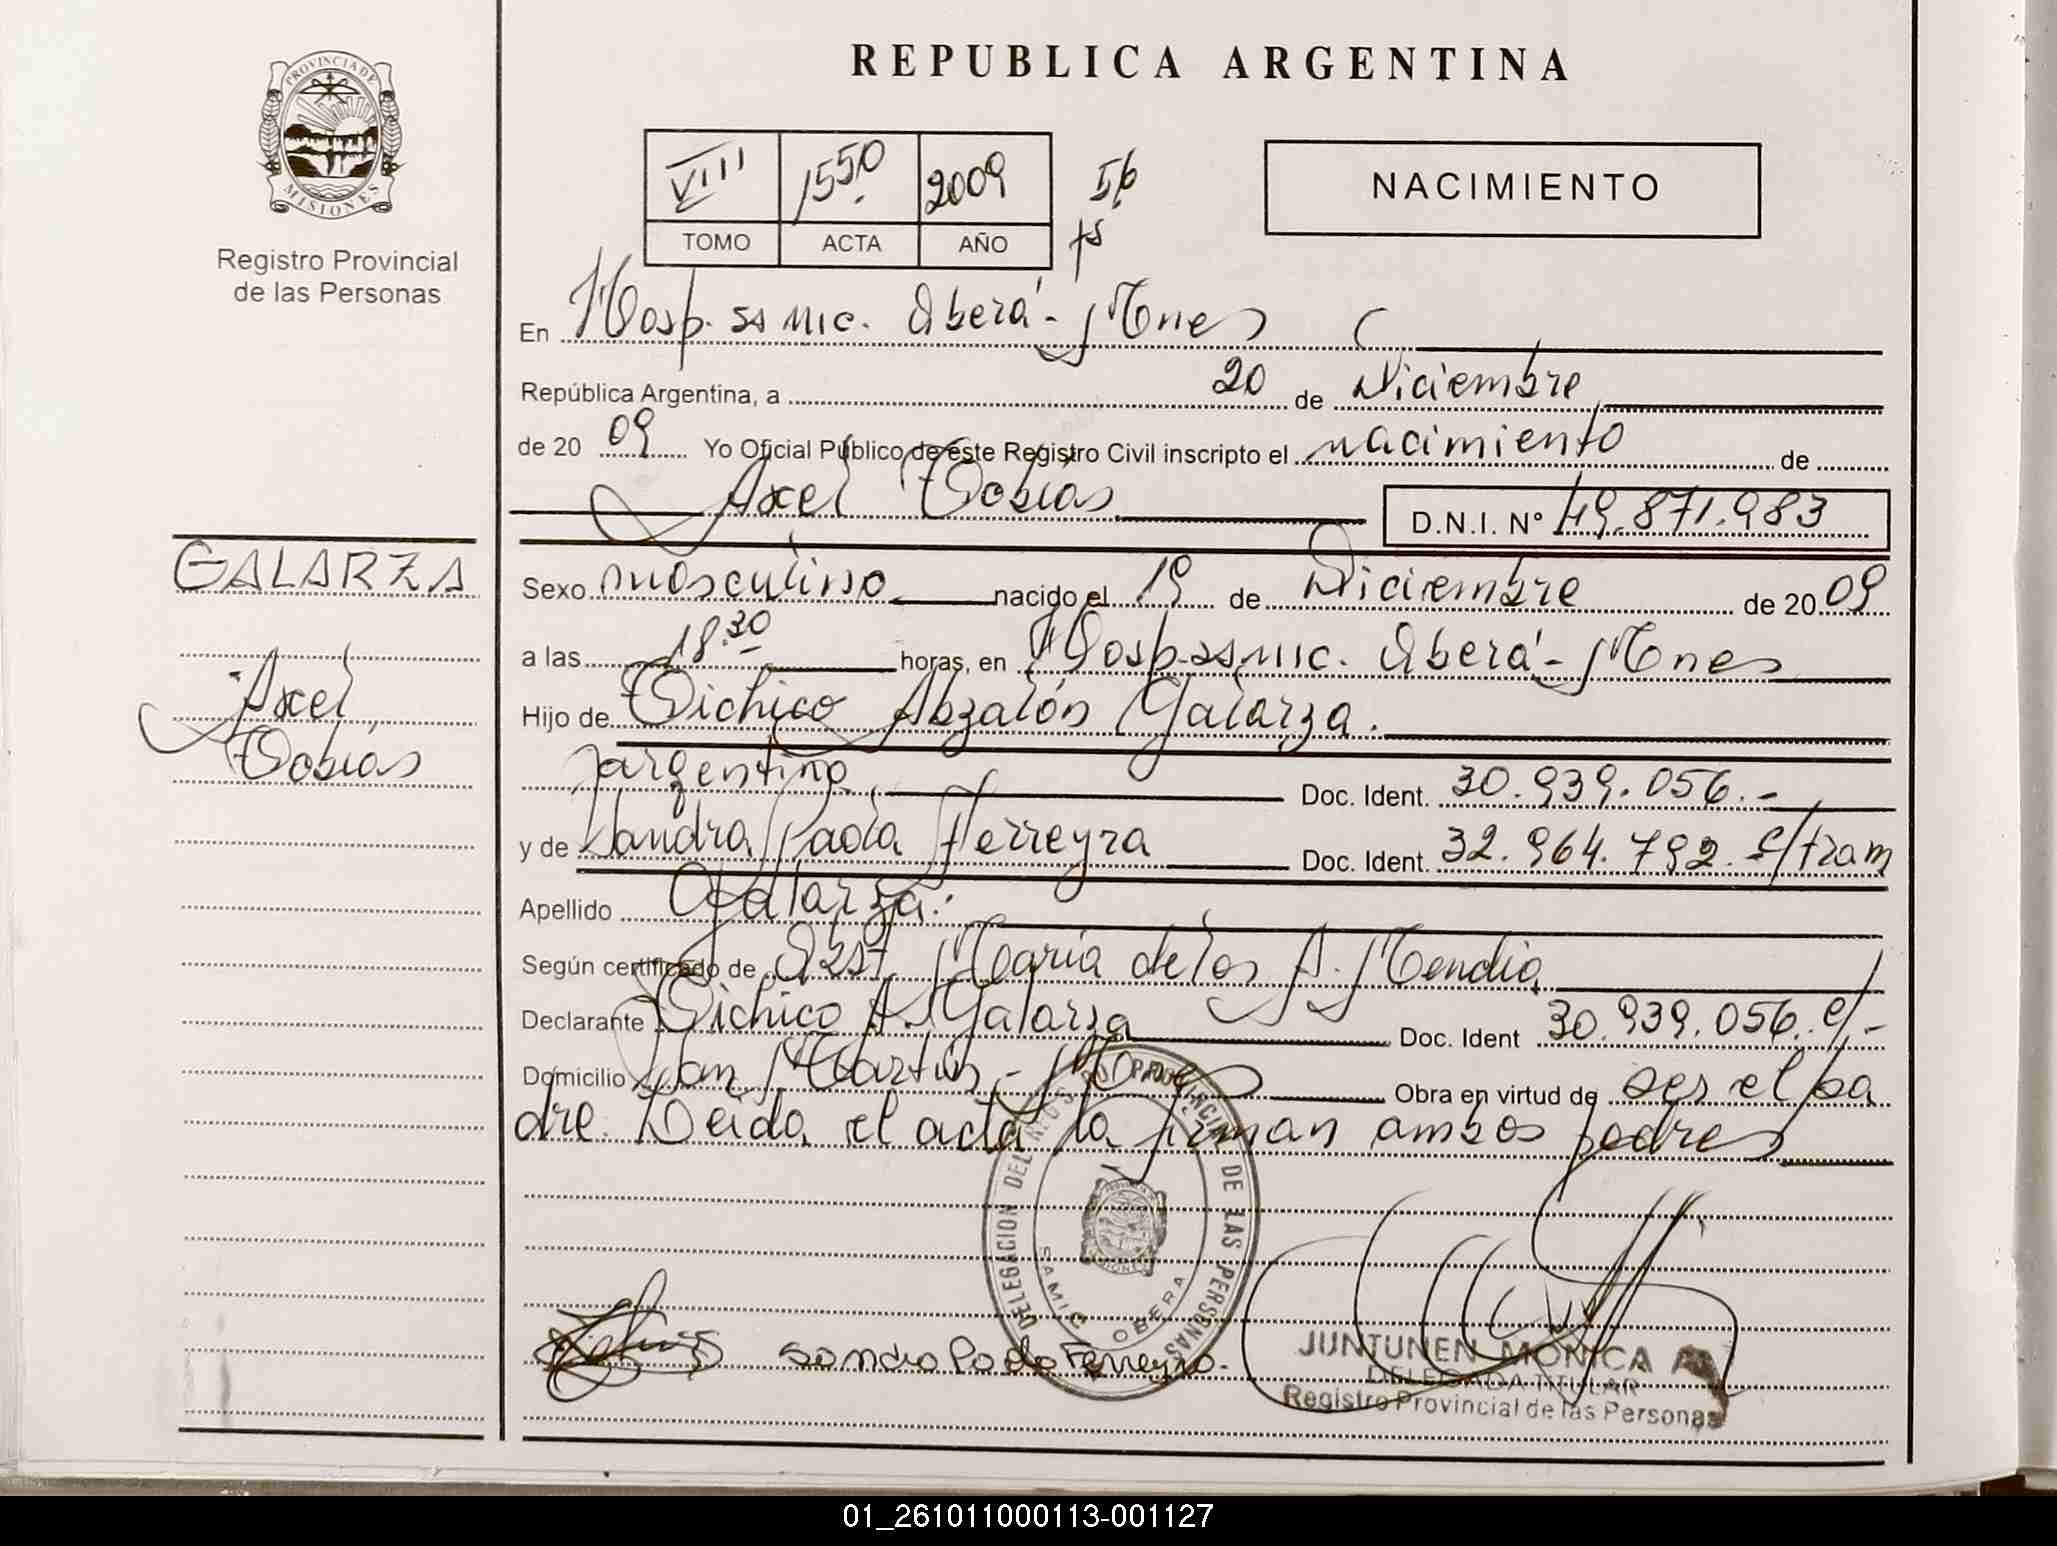 REPUBLICA ARGENTINA
PROVINCIA DE
MISIONES
Registro Provincial
de las Personas
VIII 1550 2009
TOMO ACTA AÑO
NACIMIENTO
En Hosp. ss mic. Oberá - Mnes
República Argentina, a 20 de Diciembre
de 20 09 Yo Oficial Público de este Registro Civil inscripto el nacimiento de
Axel Tobias D.N.I. Nº 49.871.983
GALARZA
Axel
Tobias
Sexo masculino nacido el 19 de Diciembre de 20 09
a las 18.30 horas, en Hosp. ss mic. Oberá - Mnes
Hijo de Abzalón Galarza.
argentino Doc. Ident. 30.939.056.-
y de Sandra Paola Ferreyra Doc. Ident. 32.964.792. c/tram
Apellido Galarza.
Según certificado de Obst María de los A. Mendia
Declarante A. Galarza Doc. Ident 30.939.056. c/-
Domicilio San Martín - Mnes Obra en virtud de ser el pa
dre. Leida el acta la firman ambos padres
DELEGACION DEL REGISTRO PROVINCIAL DE LAS PERSONAS
SAMIC OBERA
Sandra Paola Ferreyra.
JUNTUNEN MONICA A
DELEGADA TITULAR
Registro Provincial de las Personas
01_261011000113-001127